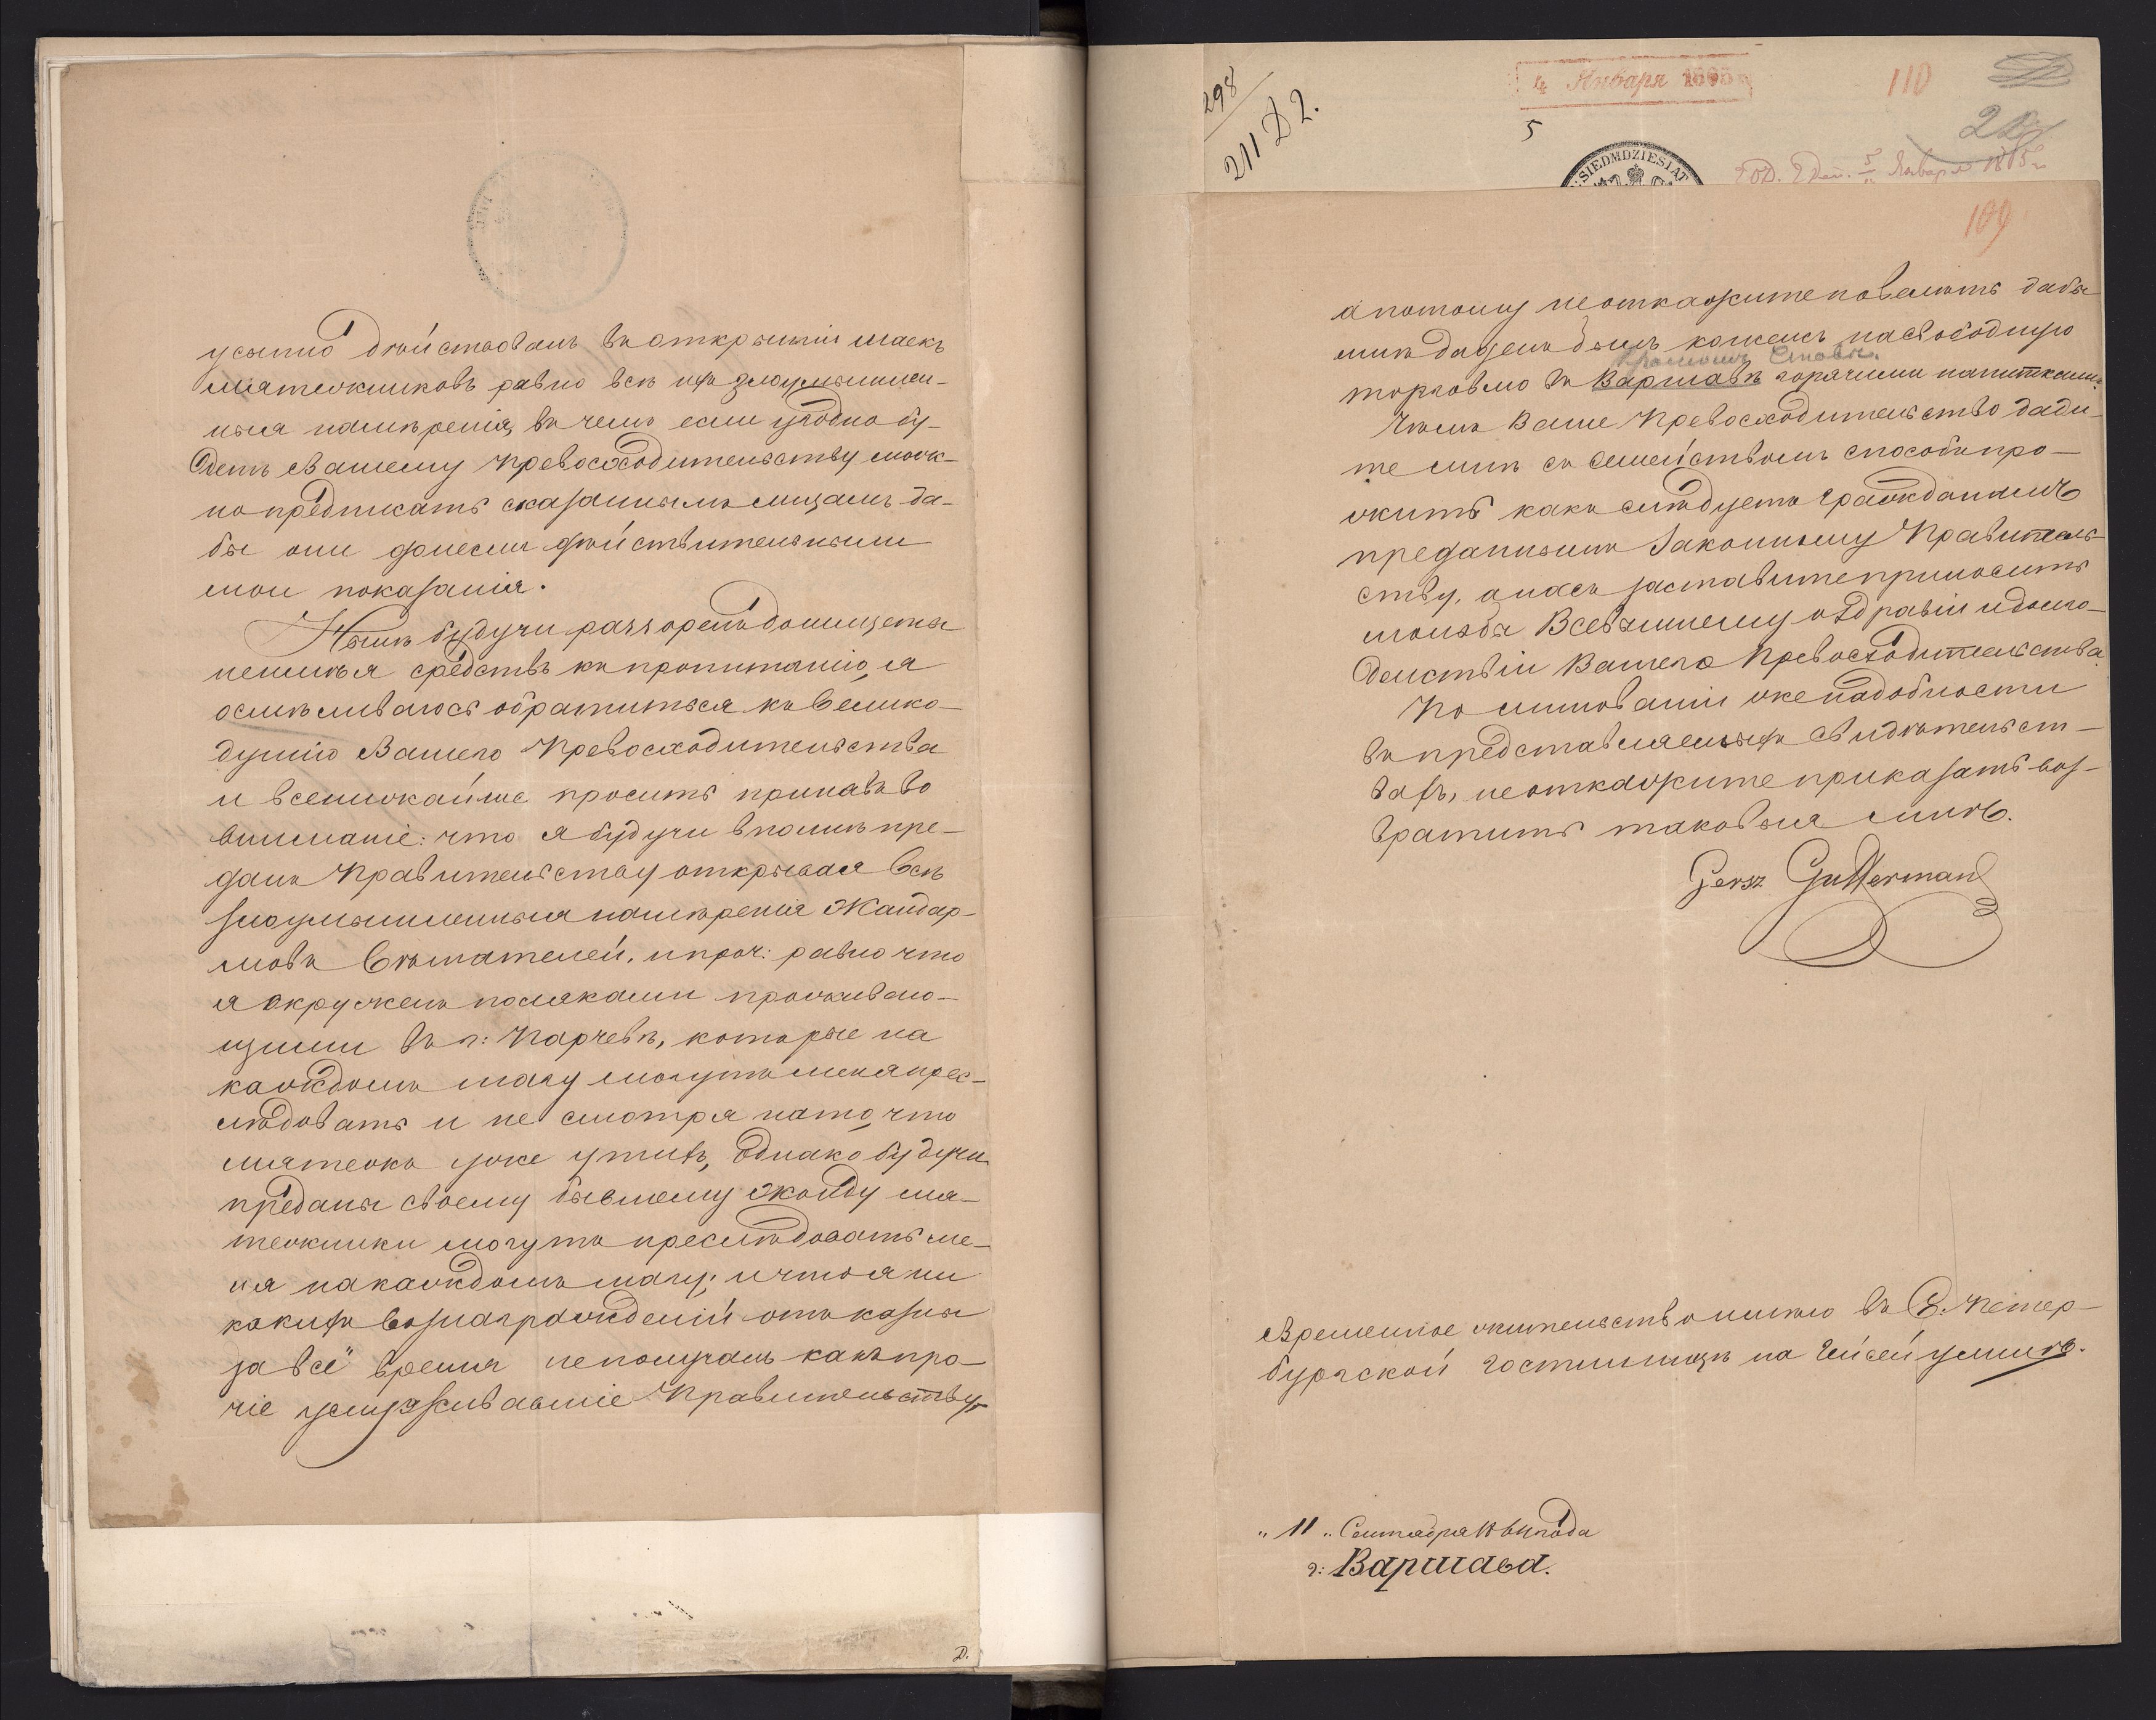 усыпно дѣйствовалъ въ открытіи шаекъ
мятежниковъ равно всѣ ихъ злоумышлен-
ныя намѣренія, въ чемъ если угодно бу-
детъ Вашему Превосходительству мож-
но предписать сказаннымъ лицамъ да-
бы они донесли дѣйствительными
мои показанія.
Нынѣ будучи раззоренъ до нищеты
неимѣя средствъ къ пропитанію, я
осмѣливаюсь обратиться къ велико-
душію Вашего Превосходительства
и всенижайше просить принявъ во
вниманіе: что я будучи вполнѣ пре-
данъ Правительству открывая всѣ
злоумышленныя намѣренія Жандар-
мовъ Вѣшателей, и проч: равно что
я окруженъ поляками проживаю-
щими въ г: Парчевѣ, которые на
каждомъ шагу могутъ меня прес-
лѣдовать и не смотря на то, что
мятежъ уже утихъ, однако будучи
преданы своему бывшему Жонду мя-
тежники могутъ преслѣдовать ме-
ня на каждомъ шагу; и что я ни
какихъ вознагражденій отъ казны
за всё время не получалъ какъ про-
чіе услуживавшіе Правительству,
298
211 D 2.
4 Января 1865
5
110
SIEDMDZIESIĄT
Января 1865
109
а потому неоткажите повелить дабы
мнѣ даденъ былъ консенсъ на свободную
торговлю въ Варшавѣ горячими напитками.
Чѣмъ Ваше Превосходительство дади-
те мнѣ съ семействомъ способъ про-
жить какъ слѣдуетъ гражданамъ
преданнымъ Законному Правитель-
ству, а насъ заставите приносить
мольбы Всевышнему о здравіи и долго-
денствіи Вашего Превосходительства.
По минованіи же надобности
въ представляемыхъ свидѣтельст-
вахъ, неоткажите приказать воз-
вратить таковыя мнѣ.
Gersz Gutterman
Временное жительство имѣю въ С. Петер-
бургской гостинницѣ на Гейсей улицѣ.
"11" Сентября 1864 года
г: Варшава.
D.